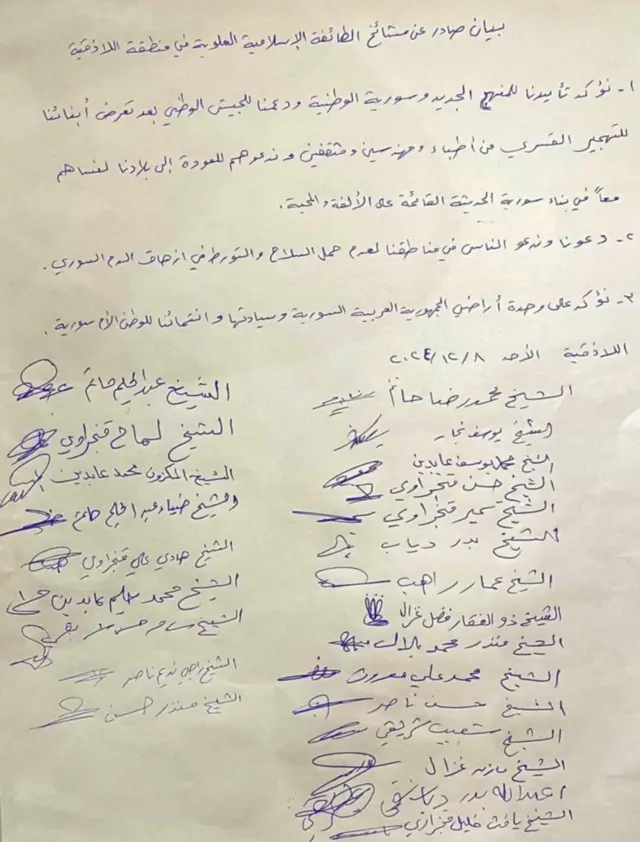 بيان صادر عن مشائخ الطائفة الإسلامية العلوية في منطقة اللاذقية
١- نؤكد تأييدنا للمنهج الجديد وسورية الوطنية ودعمنا للجيش الوطني بعد تعرض أبنائنا
للتهجير القسري من أطباء ومهندسين ومثقفين وندعوهم للعودة إلى بلادنا لنساهم
معاً في بناء سورية الحديثة القائمة على الألفة والمحبة.
٢- دعونا وندعو الناس في مناطقنا لعدم حمل السلاح والتورط في ازهاق الدم السوري.
٣- نؤكد على وحدة أراضي الجمهورية العربية السورية وسيادتها وانتمائنا للوطن الأم سورية.
اللاذقية الأحد ٢٠٢٤/١٢/٨
الشيخ محمد رضا حاتم
الشيخ يوسف نجار
الشيخ محمد يوسف عابدين
الشيخ حسن قنجراوي
الشيخ سمير قنجراوي
الشيخ بدر دياب
الشيخ عمار راهب
الشيخ ذو الفقار فضل غزال
الشيخ منذر محمد بلال
الشيخ محمد علي
الشيخ حسن ناصر
الشيخ شعيب شريقي
الشيخ مازن غزال
عبدالله بدر
الشيخ يافث خليل قنجراوي
الشيخ عبد الحليم حاتم
الشيخ لماح قنجراوي
الشيخ المكزون محمد عابدين
الشيخ ضياء عبد الحليم حاتم
الشيخ هادي علي قنجراوي
الشيخ محمد سليم عابدين
الشيخ سامر حسن
الشيخ راجي نديم ناصر
الشيخ منذر حسن